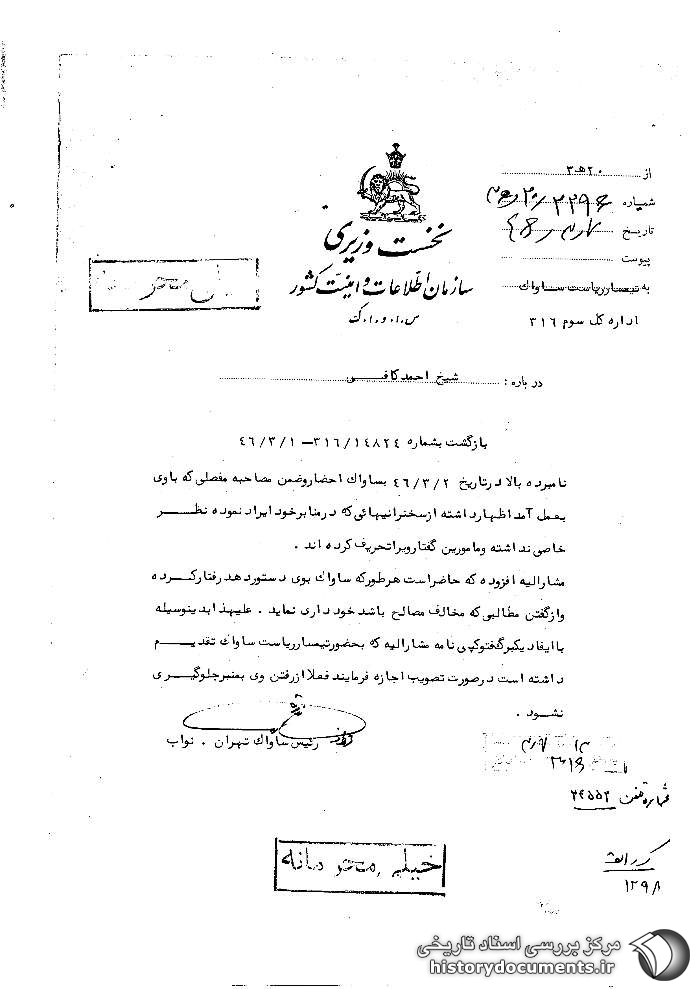 از ۲۰ ﻫ ۳
شماره
تاریخ
پیوست
به تیمسار ریاست ساواک
اداره کل سوم ۳۱۶
نخست وزیری
سازمان اطلاعات و امنیت کشور
س.ا.و.ا.ک
درباره : شیخ احمد کافی
بازگشت بشماره ۳۱۶/۱۴۸۲۴ – ۴۶/۳/۱
نامبرده بالا در تاریخ ۴۶/۳/۲ بساواک احضار و ضمن مصاحبه مفصلی که باوی
بعمل آمد اظهار داشته از سخنرانیهائی که در منابر خود ایراد نموده نظر
خاصی نداشته و مامورین گفتار ویرا تحریف کرده اند .
مشارالیه افزوده که حاضر است هر طور که ساواک بوی دستور دهد رفتار کرده
و از گفتن مطالبی که مخالف مصالح باشد خودداری نماید . علیهذا بدینوسیله
با ایفاد یکبرگ فتوکپی نامه مشارالیه که بحضور تیمسار ریاست ساواک تقدیم
داشته است در صورت تصویب اجازه فرمایند فعلا از رفتن وی بمنبر جلوگیری
نشود .
رئیس ساواک تهران . نواب
شماره تلفن ۳۴۵۵۲
۱۲۹۸
خیلی محرمانه
مرکز بررسی اسناد تاریخی
historydocuments.ir